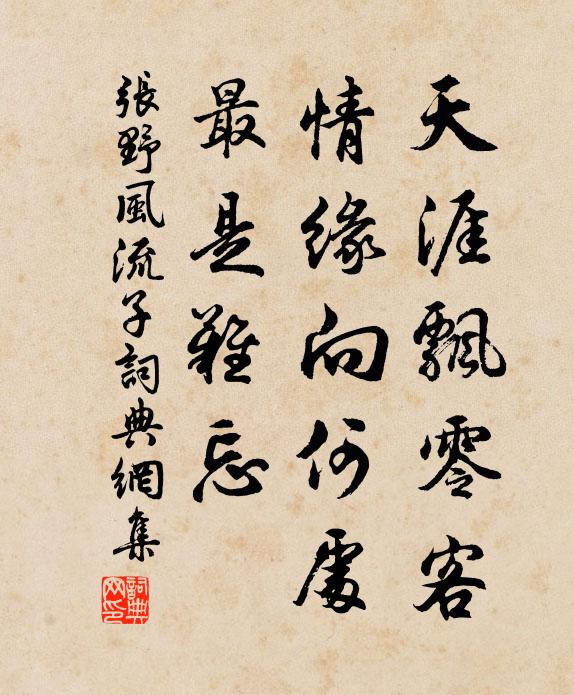 天涯飄零客
情緣向何處
最是難忘
張野風流子詞典網集
詞典网印